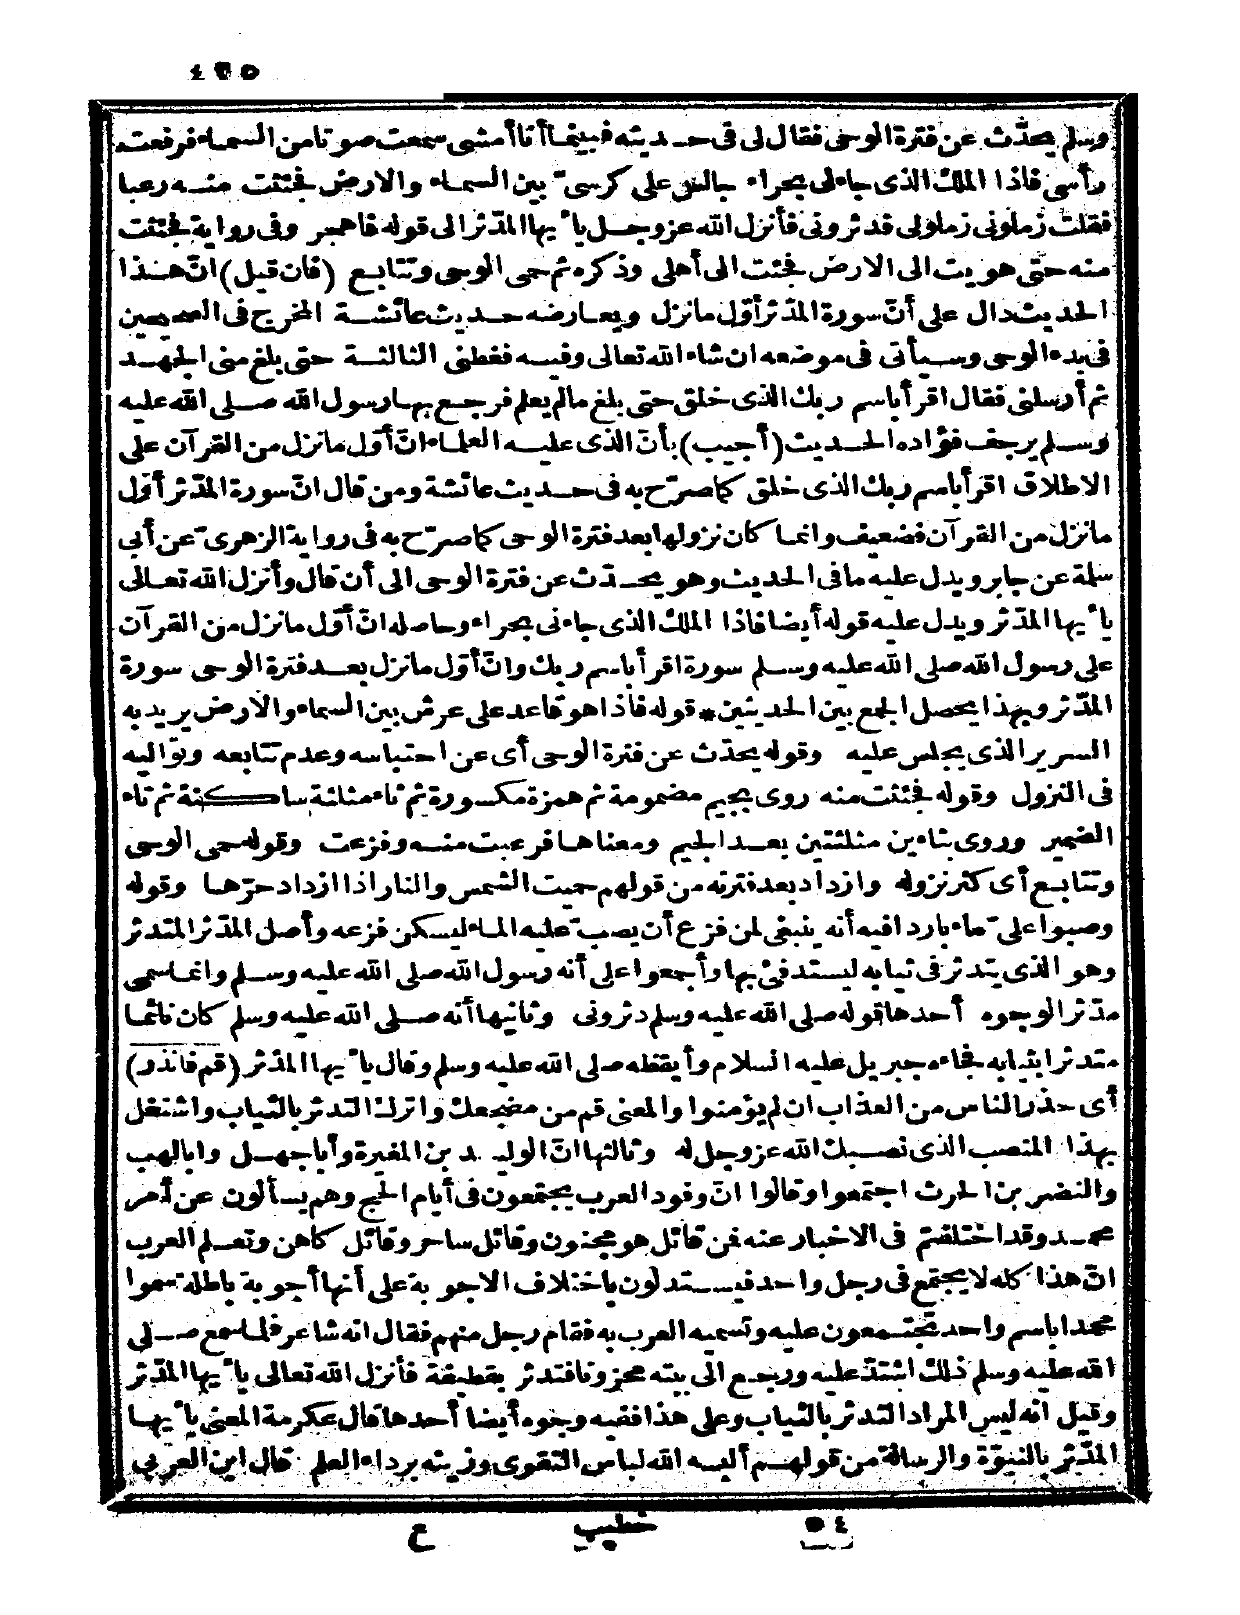 ٤٢٥
وسلم يحدّث عن فترة الوحى فقال لى فى حديثه فبينما أنا أمشى سمعت صوتا من السماء فرفعت
رأسى فاذا الملك الذى جاءنى بحراء جالس على كرسىّ بين السماء والارض فجئثت منه رعبا
فقلت زملونى زملونى فدثرونى فأنزل الله عز وجل يا أيها المدّثر الى قوله فاهجر وفى رواية فجئثت
منه حتى هويت الى الارض فجئت الى أهلى وذكره ثم حمى الوحى وتتابع (فان قيل) انّ هذا
الحديث دال على أنّ سورة المدّثر أوّل ما نزل ويعارضه حديث عائشة المخرج فى الصحيحين
فى بدء الوحى وسيأتى فى موضعه ان شاء الله تعالى وفيه فغطنى الثالثة حتى بلغ منى الجهد
ثم أرسلنى فقال اقرأ باسم ربك الذى خلق حتى بلغ ما لم يعلم فرجع بها رسول الله صلى الله عليه
وسلم يرجف فؤاده الحديث (أجيب) بأنّ الذى عليه العلماء انّ أوّل ما نزل من القرآن على
الاطلاق اقرأ باسم ربك الذى خلق كما صرّح به فى حديث عائشة ومن قال انّ سورة المدّثر أوّل
ما نزل من القرآن فضعيف وانما كان نزولها بعد فترة الوحى كما صرّح به فى رواية الزهرىّ عن أبى
سلمة عن جابر ويدل عليه ما فى الحديث وهو يحدّث عن فترة الوحى الى أن قال وأنزل الله تعالى
يا أيها المدّثر ويدل عليه قوله أيضا فاذا الملك الذى جاءنى بحراء وحاصله انّ أوّل ما نزل من القرآن
على رسول الله صلى الله عليه وسلم سورة اقرأ باسم ربك وانّ أوّل ما نزل بعد فترة الوحى سورة
المدّثر وبهذا يحصل الجمع بين الحديثين * قوله فاذا هو قاعد على عرش بين السماء والارض يريد به
السرير الذى يجلس عليه وقوله يحدّث عن فترة الوحى أى عن احتباسه وعدم تتابعه وتواليه
فى النزول وقوله فجئثت منه روى بجيم مضمومة ثم همزة مكسورة ثم ثاء مثلثة ساكنة ثم تاء
الضمير وروى بثاءين مثلثتين بعد الجيم ومعناها فرعبت منه وفزعت وقوله حمى الوحى
وتتابع أى كثر نزوله وازداد بعد فترته من قولهم حميت الشمس والنار اذا ازداد حرّها وقوله
وصبوا علىّ ماء باردا فيه أنه ينبغى لمن فزع أن يصب عليه الماء ليسكن فزعه وأصل المدّثر المتدثر
وهو الذى يتدثر فى ثيابه ليستدفئ بها وأجمعوا على أنه رسول الله صلى الله عليه وسلم وانما سمى
مدّثرا لوجوه أحدها قوله صلى الله عليه وسلم دثرونى وثانيها أنه صلى الله عليه وسلم كان نائما
متدثرا بثيابه فجاءه جبريل عليه السلام وأيقظه صلى الله عليه وسلم وقال يا أيها المدّثر (قم فانذر)
أى حذر الناس من العذاب ان لم يؤمنوا والمعنى قم من مضجعك واترك التدثر بالثياب واشتغل
بهذا المنصب الذى نصبك الله عز وجل له وثالثها انّ الوليد بن المغيرة وأبا جهل وابا لهب
والنضر بن الحرث اجتمعوا وقالوا انّ وفود العرب يجتمعون فى أيام الحج وهم يسألون عن أمر
محمد وقد اختلفتم فى الاخبار عنه فمن قائل هو مجنون وقائل ساحر وقائل كاهن وتعلم العرب
انّ هذا كله لا يجتمع فى رجل واحد فيستدلون باختلاف الاجوبة على أنها أجوبة باطلة سموا
محمدا باسم واحد تجتمعون عليه وتسميه العرب به فقام رجل منهم فقال انه شاعر فلما سمع صلى
الله عليه وسلم ذلك اشتدّ عليه ورجع الى بيته محزونا فتدثر بقطيفة فأنزل الله تعالى يا أيها المدّثر
وقيل انه ليس المراد التدثر بالثياب وعلى هذا ففيه وجوه أيضا أحدها قال عكرمة المعنى يا أيها
المدّثر بالنبوّة والرسالة من قولهم ألبسه الله لباس التقوى وزينه برداء العلم قال ابن العربى
٥٤ خطيب ع